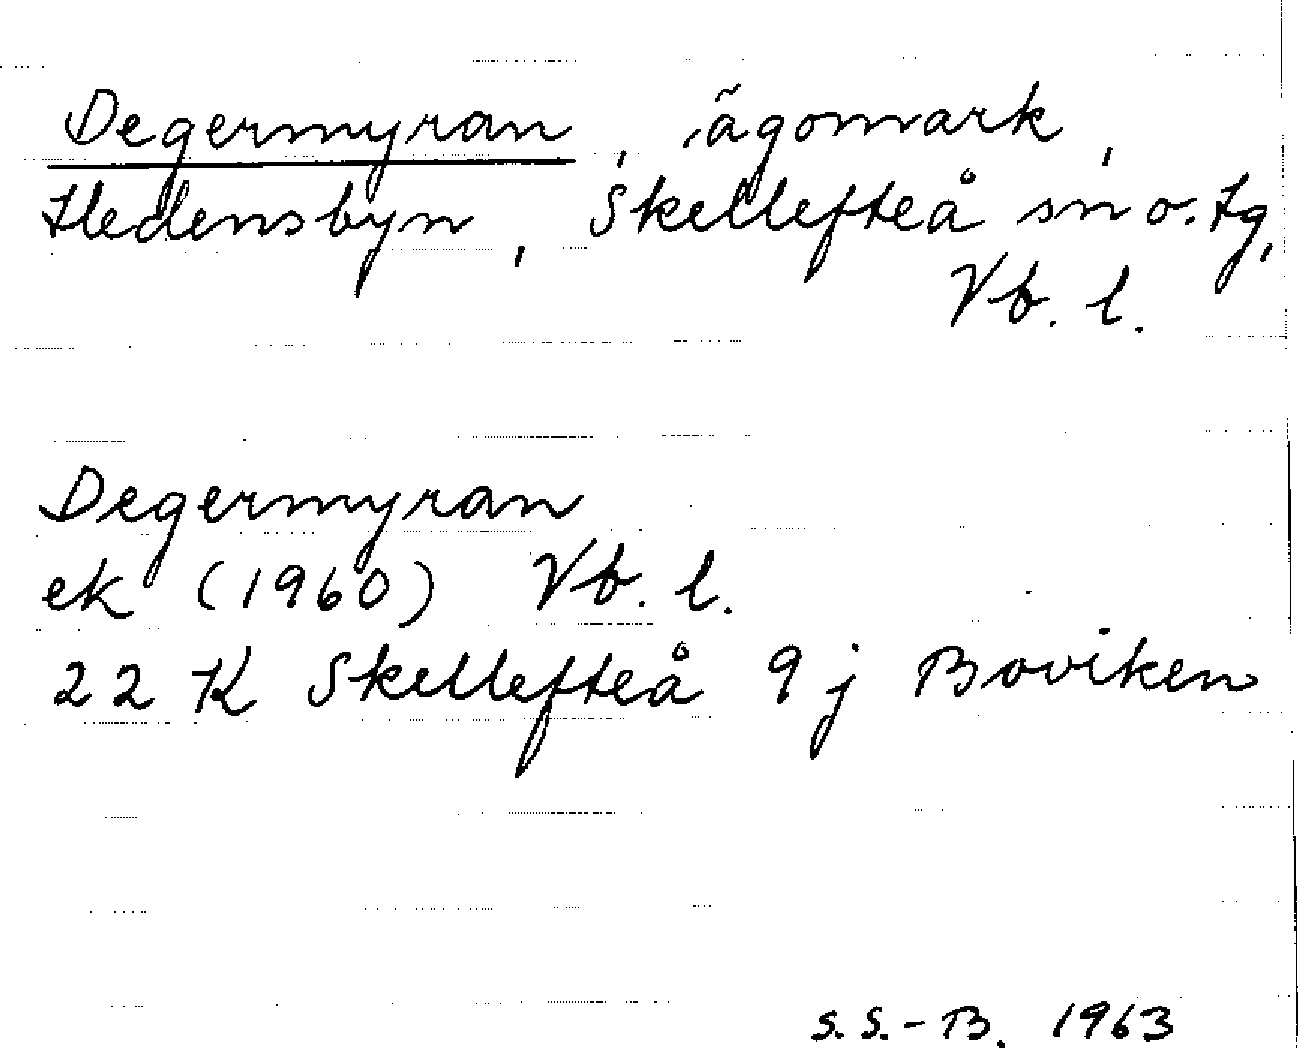 Degermyran, ägomark,
Hedensbyn, Skellefteå sn o. tg,
Vb. l.
Degermyran
ek (1960) Vb. l.
22 K Skellefteå 9 j Boviken
S. S. - B. 1963